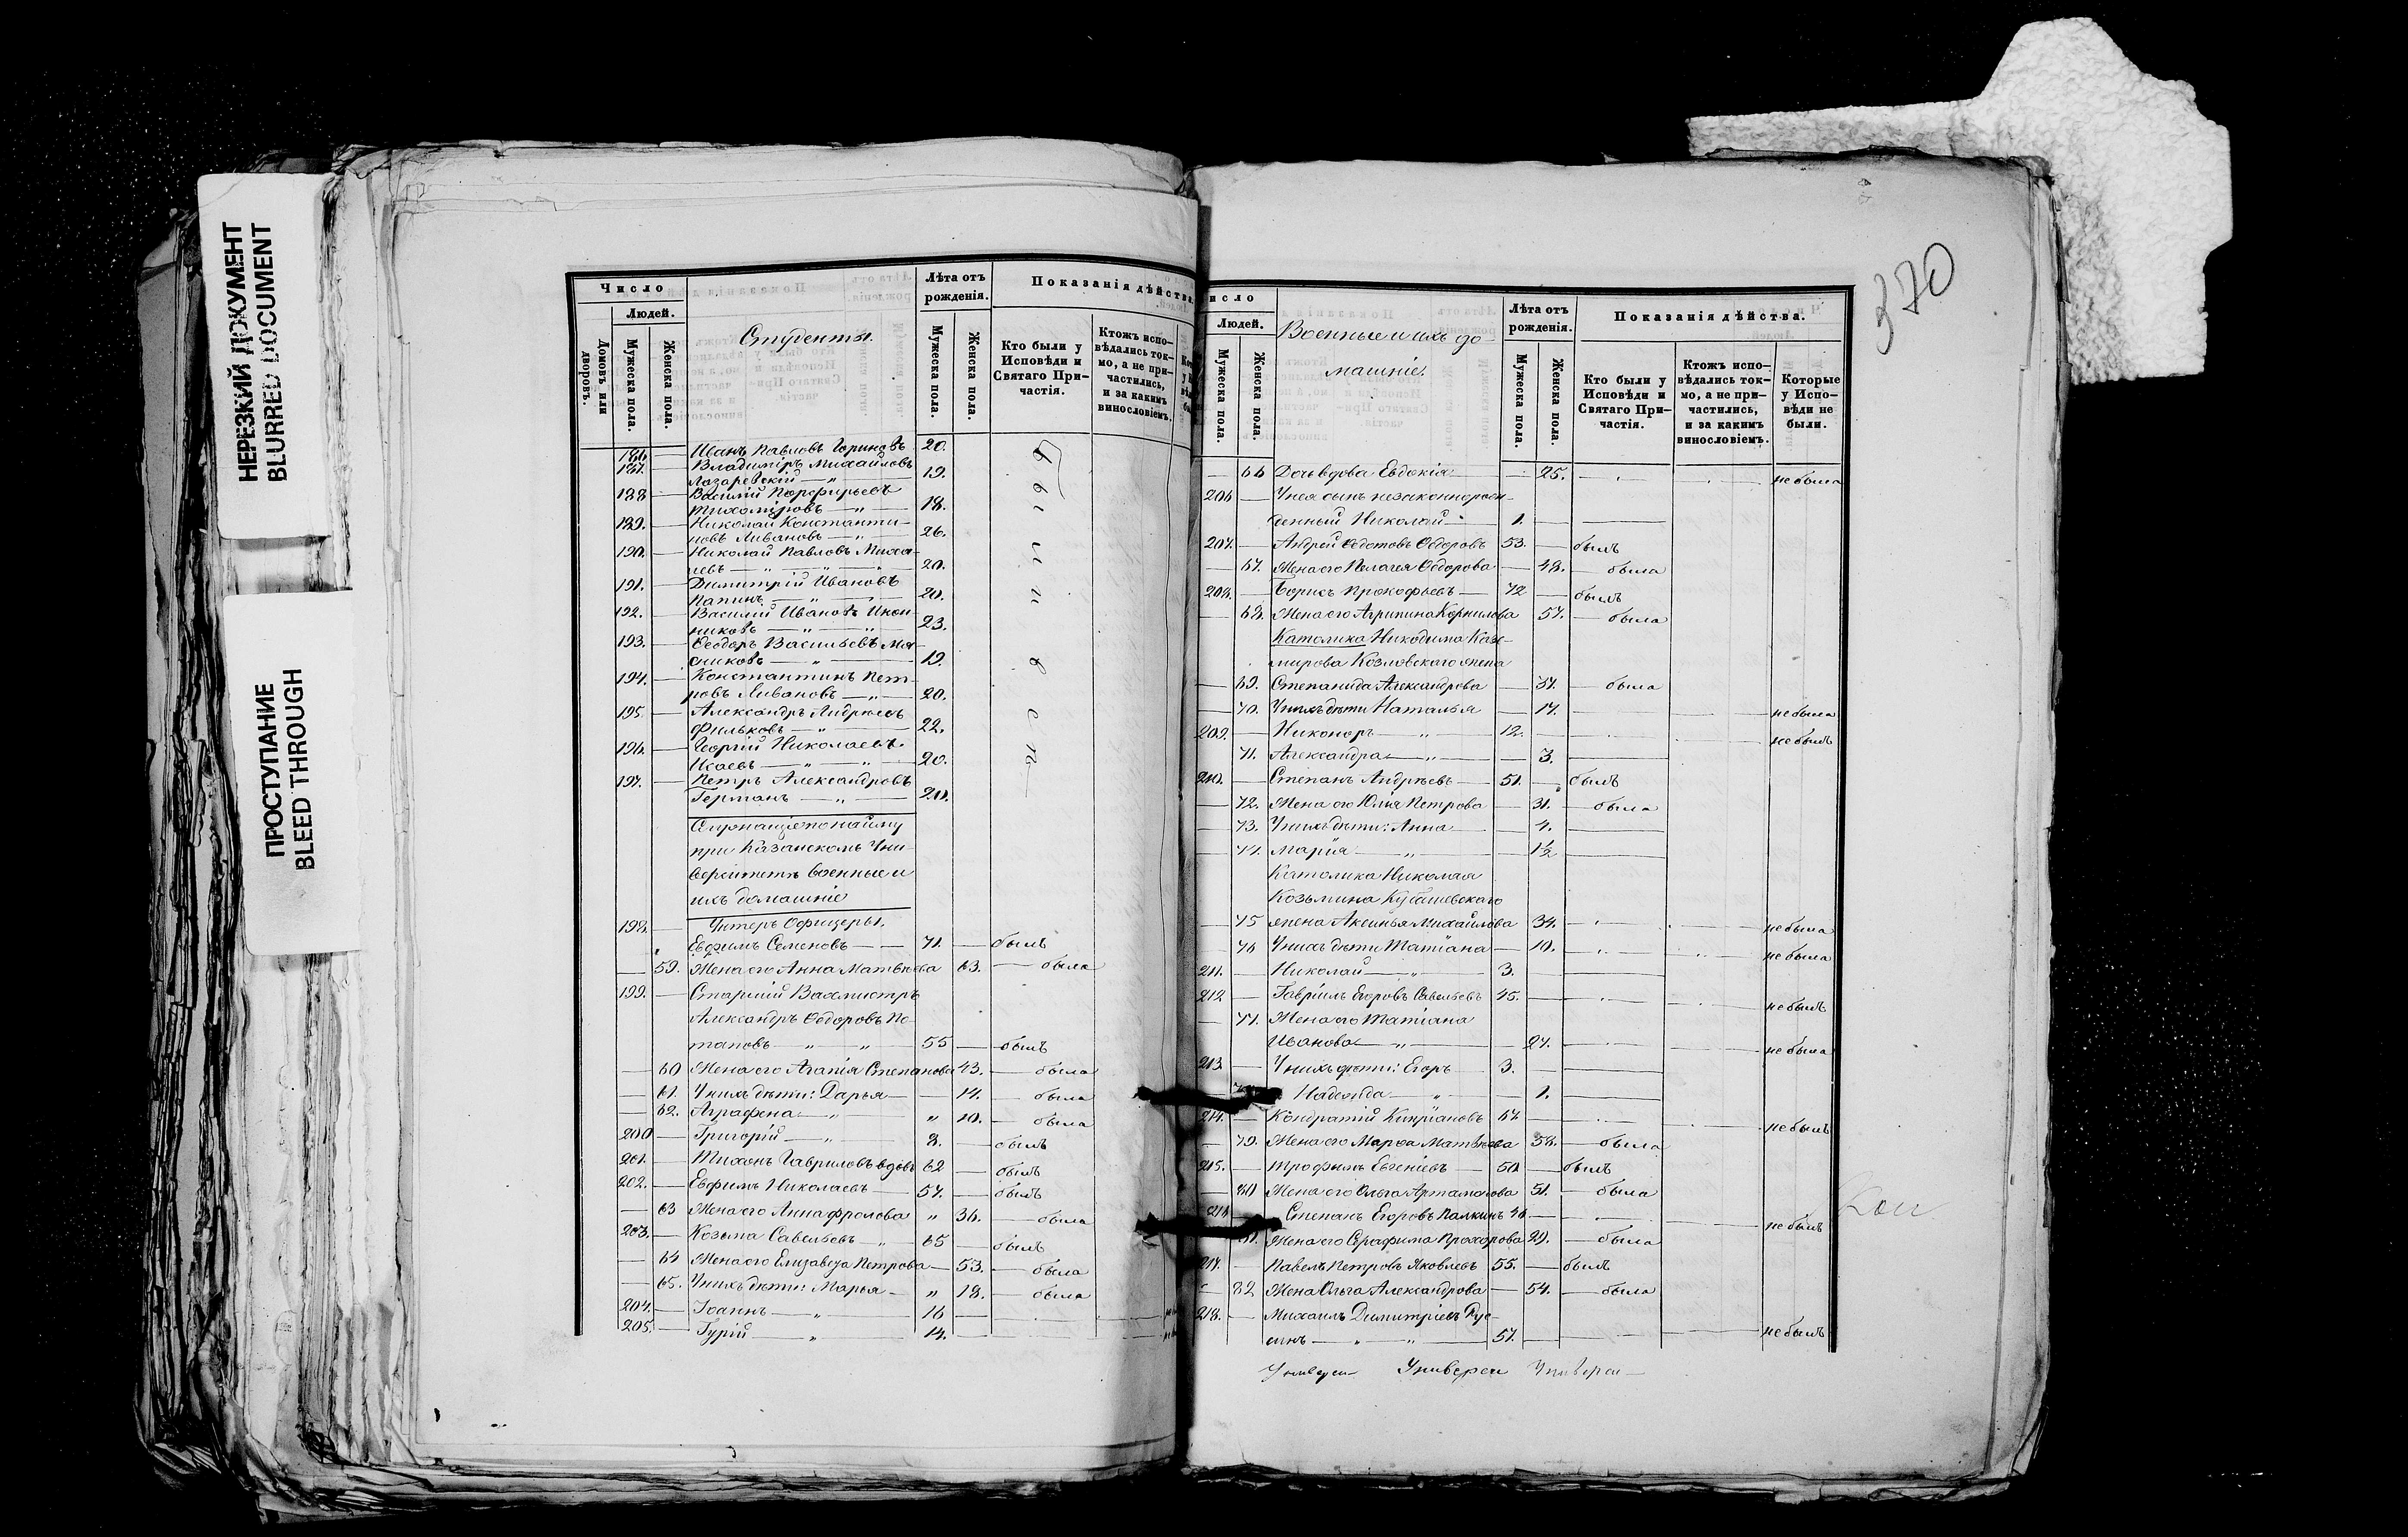 НЕРЕЗКИЙ ДОКУМЕНТ
BLURRED DOCUMENT
ПРОСТУПАНИЕ
BLEED THROUGH
Число
Людей.
Домовъ или дворовъ.
Мужеска пола.
Женска пола.
Студенты.
Лѣта отъ рожденія.
Мужеска пола.
Женска пола.
Показанія дѣйства
Кто были у Исповѣди и Святаго Причастія.
Ктожъ исповѣдались токмо, а не причастились, и за какимъ винословіемъ.
186. Иванъ Павловъ Гориновъ 20.
187. Владиміръ Михайловъ
Лазаревскій — „ — 19.
188 Василій Порфирьевъ
Тихоміровъ — „ — 18.
189. Николай Константи-
новъ Ливановъ — „ — 26.
190. Николай Павловъ Миха-
левъ — „ — „ — 20.
191. Димитрій Ивановъ
Папинъ — „ — 20.
192. Василій Ивановъ Икон-
никовъ — „ — „ 23.
193. Ѳеодоръ Васильевъ Мя-
сниковъ — „ — 19.
194. Константинъ Пет-
ровъ Ливановъ — „ — 20.
195. Александръ Андреевъ
Фильковъ — „ — 22.
196. Георгій Николаевъ
Исаевъ — „ — „ 20.
197. Петръ Александровъ
Германъ — „ — 20.
Служащіе по найму
при Казанскомъ Уни-
верситетѣ военные и
ихъ домашніе
198. Унтеръ Офицеры.
Евфимъ Семеновъ — 71. — былъ
59. Жена его Анна Матвѣева 63. — была
199. Старшій Вахмистръ
Александръ Ѳедоровъ По-
таповъ — „ — „ 55 — былъ
60 Жена его Агапія Степанова 43. — была
61. У нихъ дѣти: Дарья — 14. — была
62. Аграфена — „ „ 10. — была
200 Григорій — „ 8. — былъ
201. Тихонъ Гавриловъ вдовъ 62 — былъ
202. Евфимъ Николаевъ — 57. — былъ
63 Жена его Анна Фролова „ 36. — была
203. Козьма Савельевъ — „ 65 — былъ
64 Жена его Елизавета Петрова — 53. — была
65. У нихъ дѣти: Марья — „ 18. — была
204. Іоаннъ — „ 16
205. Гурій — „ 14.
370
исло
Людей.
Мужеска пола.
Женска пола.
Военные и ихъ до-
машніе.
Лѣта отъ рожденія.
Мужеска пола.
Женска пола.
Показанія дѣйства.
Кто были у Исповѣди и Святаго Причастія.
Ктожъ исповѣдались токмо, а не причастились, и за какимъ винословіемъ.
Которые у Исповѣди не были.
66 Дочь вдова Евдокія — 25. не была
206 У нея сынъ незаконнорож-
денный Николай — 1.
207. Андрей Ѳедотовъ Ѳедоровъ 53. — былъ
67. Жена его Пелагея Ѳедорова — 48. — была
208. Борисъ Прокофьевъ — 72 — былъ
68. Жена его Агрипина Корнилова 57. — была
Католика Никодима Кази-
мирова Козловскаго жена
69. Степанида Александрова — 37. — была
70. У нихъ дѣти Наталья — 17. не была
209. Никоноръ — „ 12. не былъ
71. Александра — „ — 3.
210. Степанъ Андреевъ — 51. — былъ
72. Жена его Юлія Петрова — 31. — была
73. У нихъ дѣти: Анна — 4.
74. Марія — „ — 1½
Католика Николая
Козьмина Кубашевскаго
75 жена Аксинья Михайлова 34. не была
76 У нихъ дѣти Татіана — 10. не была
211. Николай — „ 3.
212 Гавріилъ Егоровъ Савельевъ 45. не былъ
77. Жена его Татіана
Иванова — „ — 27. не была
213. У нихъ дѣти: Егоръ — 3.
Надежда — „ — 1.
214. Кондратій Кипріановъ 67. не былъ
79. Жена его Марѳа Матвѣева 58. — была
215. Трофимъ Евгеніевъ — 50 — былъ
80 Жена его Ольга Артамонова 51. — была
216 Степанъ Егоровъ Палкинъ 46 — не былъ
81. Жена его Серафима Прохорова 29. — была
217. Павелъ Петровъ Яковлевъ 55. — былъ
82 Жена Ольга Александрова — 54. — была
218. Михаилъ Димитріевъ Рус-
синъ — „ — „ 57. не былъ
Универси Универси Универси